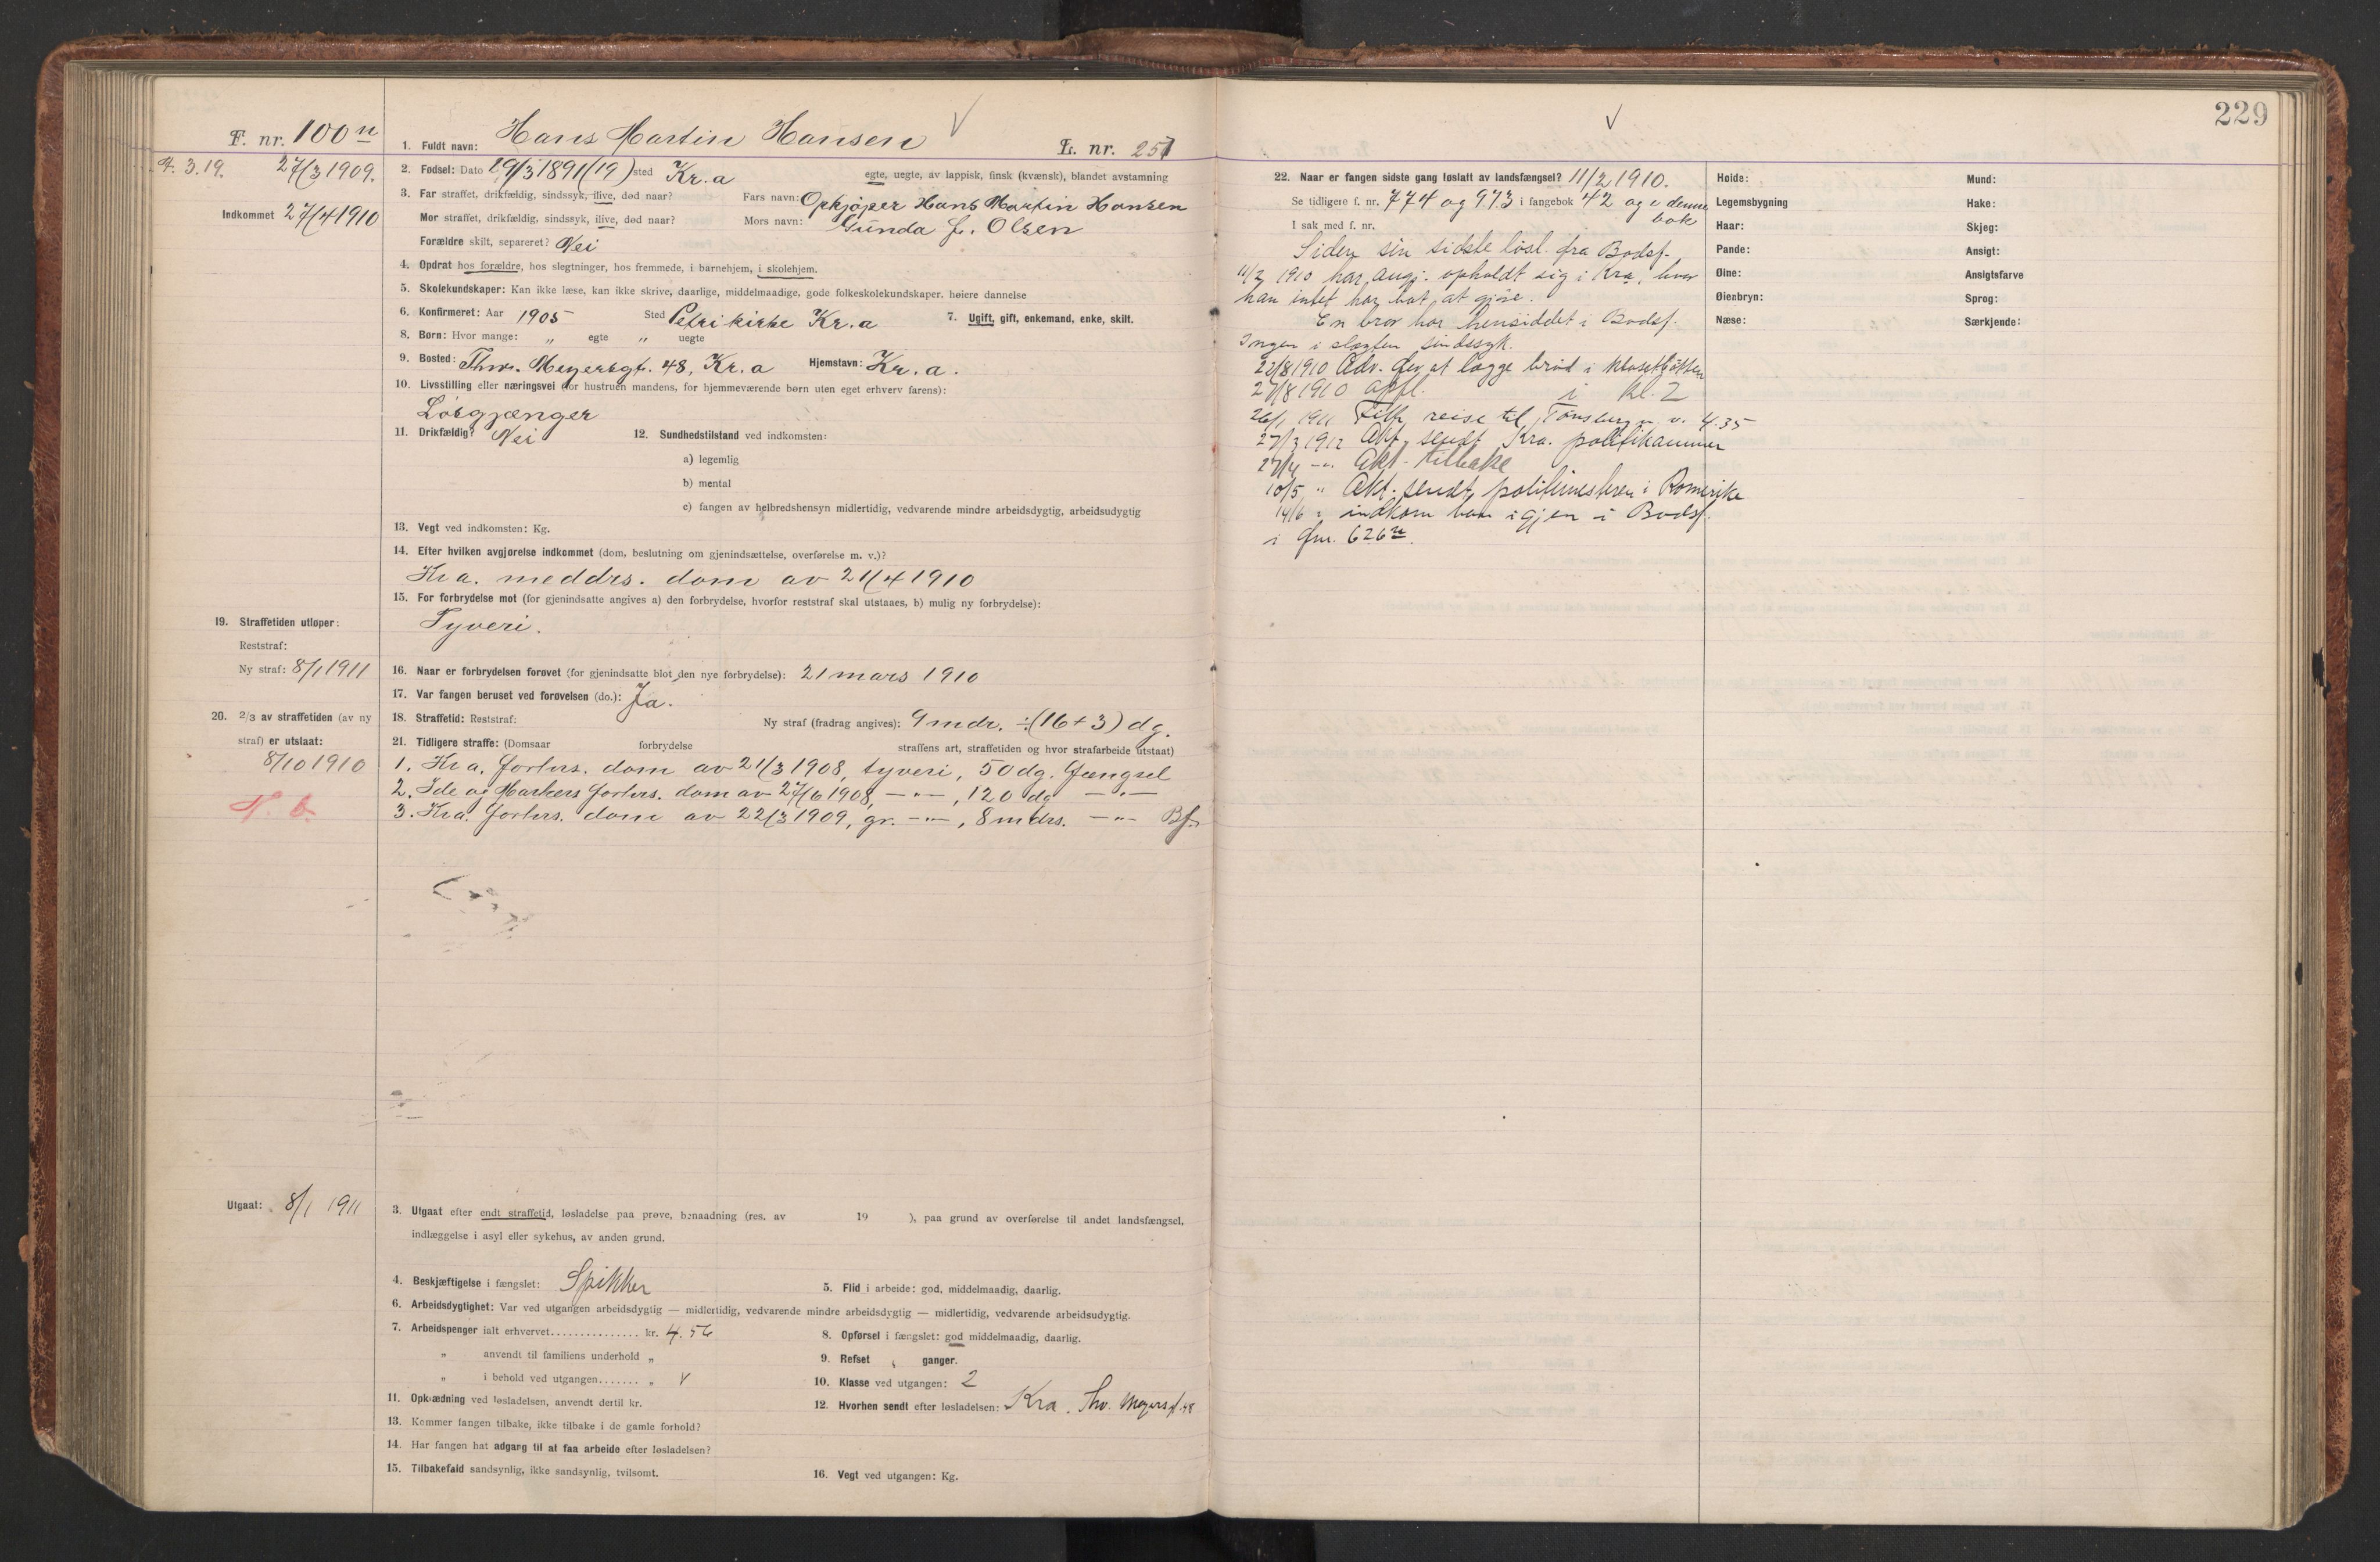 F. nr. 100 n
4. 3. 19. 27/3 1909.
Indkommet 27/4 1910
1. Fuldt navn: Hans Martin Hansen L. nr. 251
2. Fødsel: Dato 29/3 1891 (19) sted Kr.a egte, uegte, av lappisk, finsk (kvænsk), blandet avstamning
3. Far straffet, drikfældig, sindssyk, ilive, død naar? Fars navn: Opkjøper Hans Martin Hansen
Mor straffet, drikfældig, sindssyk, ilive, død naar? Mors navn: Gunda f. Olsen
Forældre skilt, separeret? Nei
4. Opdrat hos forældre, hos slegtninger, hos fremmede, i barnehjem, i skolehjem.
5. Skolekundskaper: Kan ikke læse, kan ikke skrive, daarlige, middelmaadige, gode folkeskolekundskaper, høiere dannelse
6. Konfirmeret: Aar 1905 Sted Petri kirke Kr.a 7. Ugift, gift, enkemand, enke, skilt.
8. Børn: Hvor mange: " egte " uegte
9. Bosted: Thv. Meyersgt. 48, Kr.a Hjemstavn: Kr.a.
10. Livsstilling eller næringsvei (for hustruen mandens, for hjemmeværende børn uten eget erhverv farens):
Løsgjænger
11. Drikfældig? Nei 12. Sundhedstilstand ved indkomsten:
a) legemlig
b) mental
c) fangen av helbredshensyn midlertidig, vedvarende mindre arbeidsdygtig, arbeidsudygtig
13. Vegt ved indkomsten: Kg.
14. Efter hvilken avgjørelse indkommet (dom, beslutning om gjenindsættelse, overførelse m. v.)?
Kr a. meddrs. dom av 21/4 1910
15. For forbrydelse mot (for gjenindsatte angives a) den forbrydelse, hvorfor reststraf skal utstaaes, b) mulig ny forbrydelse):
Tyveri.
19. Straffetiden utløper:
Reststraf:
Ny straf: 8/1 1911
16. Naar er forbrydelsen forøvet (for gjenindsatte blot den nye forbrydelse): 21 mars 1910
17. Var fangen beruset ved forøvelsen (do.): Ja.
20. 2/3 av straffetiden (av ny
straf) er utstaat:
8/10 1910
N. b.
18. Straffetid: Reststraf: Ny straf (fradrag angives): 9 mdr. ÷(16 + 3) dg.
21. Tidligere straffe: (Domsaar forbrydelse straffens art, straffetiden og hvor strafarbeide utstaat)
1. Kr a. forhrs. dom av 21/3 1908, tyveri, 50 dg. fængsel
2. Ide og Markers forhrs. dom av 27/6 1908, —"—, 120 dg —"—
3. Kr a. forhrs. dom av 22/3 1909, gr. —"—, 8 mdrs. —"— Bf.
Utgaat: 8/1 1911
3. Utgaat efter endt straffetid, løsladelse paa prøve, benaadning (res. av 19 ), paa grund av overførelse til andet landsfængsel,
indlæggelse i asyl eller sykehus, av anden grund.
4. Beskjæftigelse i fængslet: Spikker 5. Flid i arbeide: god, middelmaadig, daarlig.
6. Arbeidsdygtighet: Var ved utgangen arbeidsdygtig — midlertidig, vedvarende mindre arbeidsdygtig — midlertidig, vedvarende arbeidsudygtig.
7. Arbeidspenger ialt erhvervet............... kr. 4.56 8. Opførsel i fængslet: god middelmaadig, daarlig.
" anvendt til familiens underhold " 9. Refset ganger.
" i behold ved utgangen....... " 10. Klasse ved utgangen: 2
11. Opklædning ved løsladelsen, anvendt dertil kr. 12. Hvorhen sendt efter løsladelsen: Kra. Thv. Meyersgt. 48
13. Kommer fangen tilbake, ikke tilbake i de gamle forhold?
14. Har fangen hat adgang til at faa arbeide efter løsladelsen?
15. Tilbakefald sandsynlig, ikke sandsynlig, tvilsomt. 16. Vegt ved utgangen: Kg.
229
22. Naar er fangen sidste gang løslatt av landsfængsel? 11/2 1910.
Se tidligere f. nr. 774 og 973 i fangebok 42 og i denne
I sak med f. nr. bok
Siden sin sidste løsl. fra Bodsf.
11/2 1910 har angj. opholdt sig i Kra, hvor
han intet har hat at gjøre.
En bror har hensiddet i Bodsf.
Ingen i slægten sindssyk.
22/8 1910 Adv. for at lægge brød i klosetbøtten
27/8 1910 opfl. i kl. 2
26/1 1911 reise til Tønsberg 4.35
27/3 1912 Akt. sendt Kra. politikammer
27/4 —"— Akt. tilbake
10/5 " Akt. sendt politimesteren i Romerike
14/6 " indkom han igjen i Bodsf.
i fnr. 626 n.
Høide: Mund:
Legemsbygning Hake:
Haar: Skjeg:
Pande: Ansigt:
Øine: Ansigtsfarve
Øienbryn: Sprog:
Næse: Særkjende: